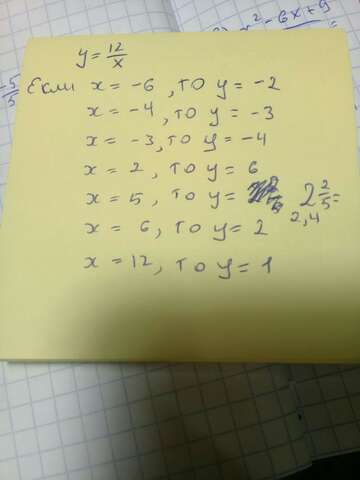 x² - 6x + 9
y = 12/x
-5/5
Если x = -6, то y = -2
x = -4, то y = -3
x = -3, то y = -4
x = 2, то y = 6
x = 5, то y = 2 2/5 =
2,4
x = 6, то y = 2
x = 12, то y = 1